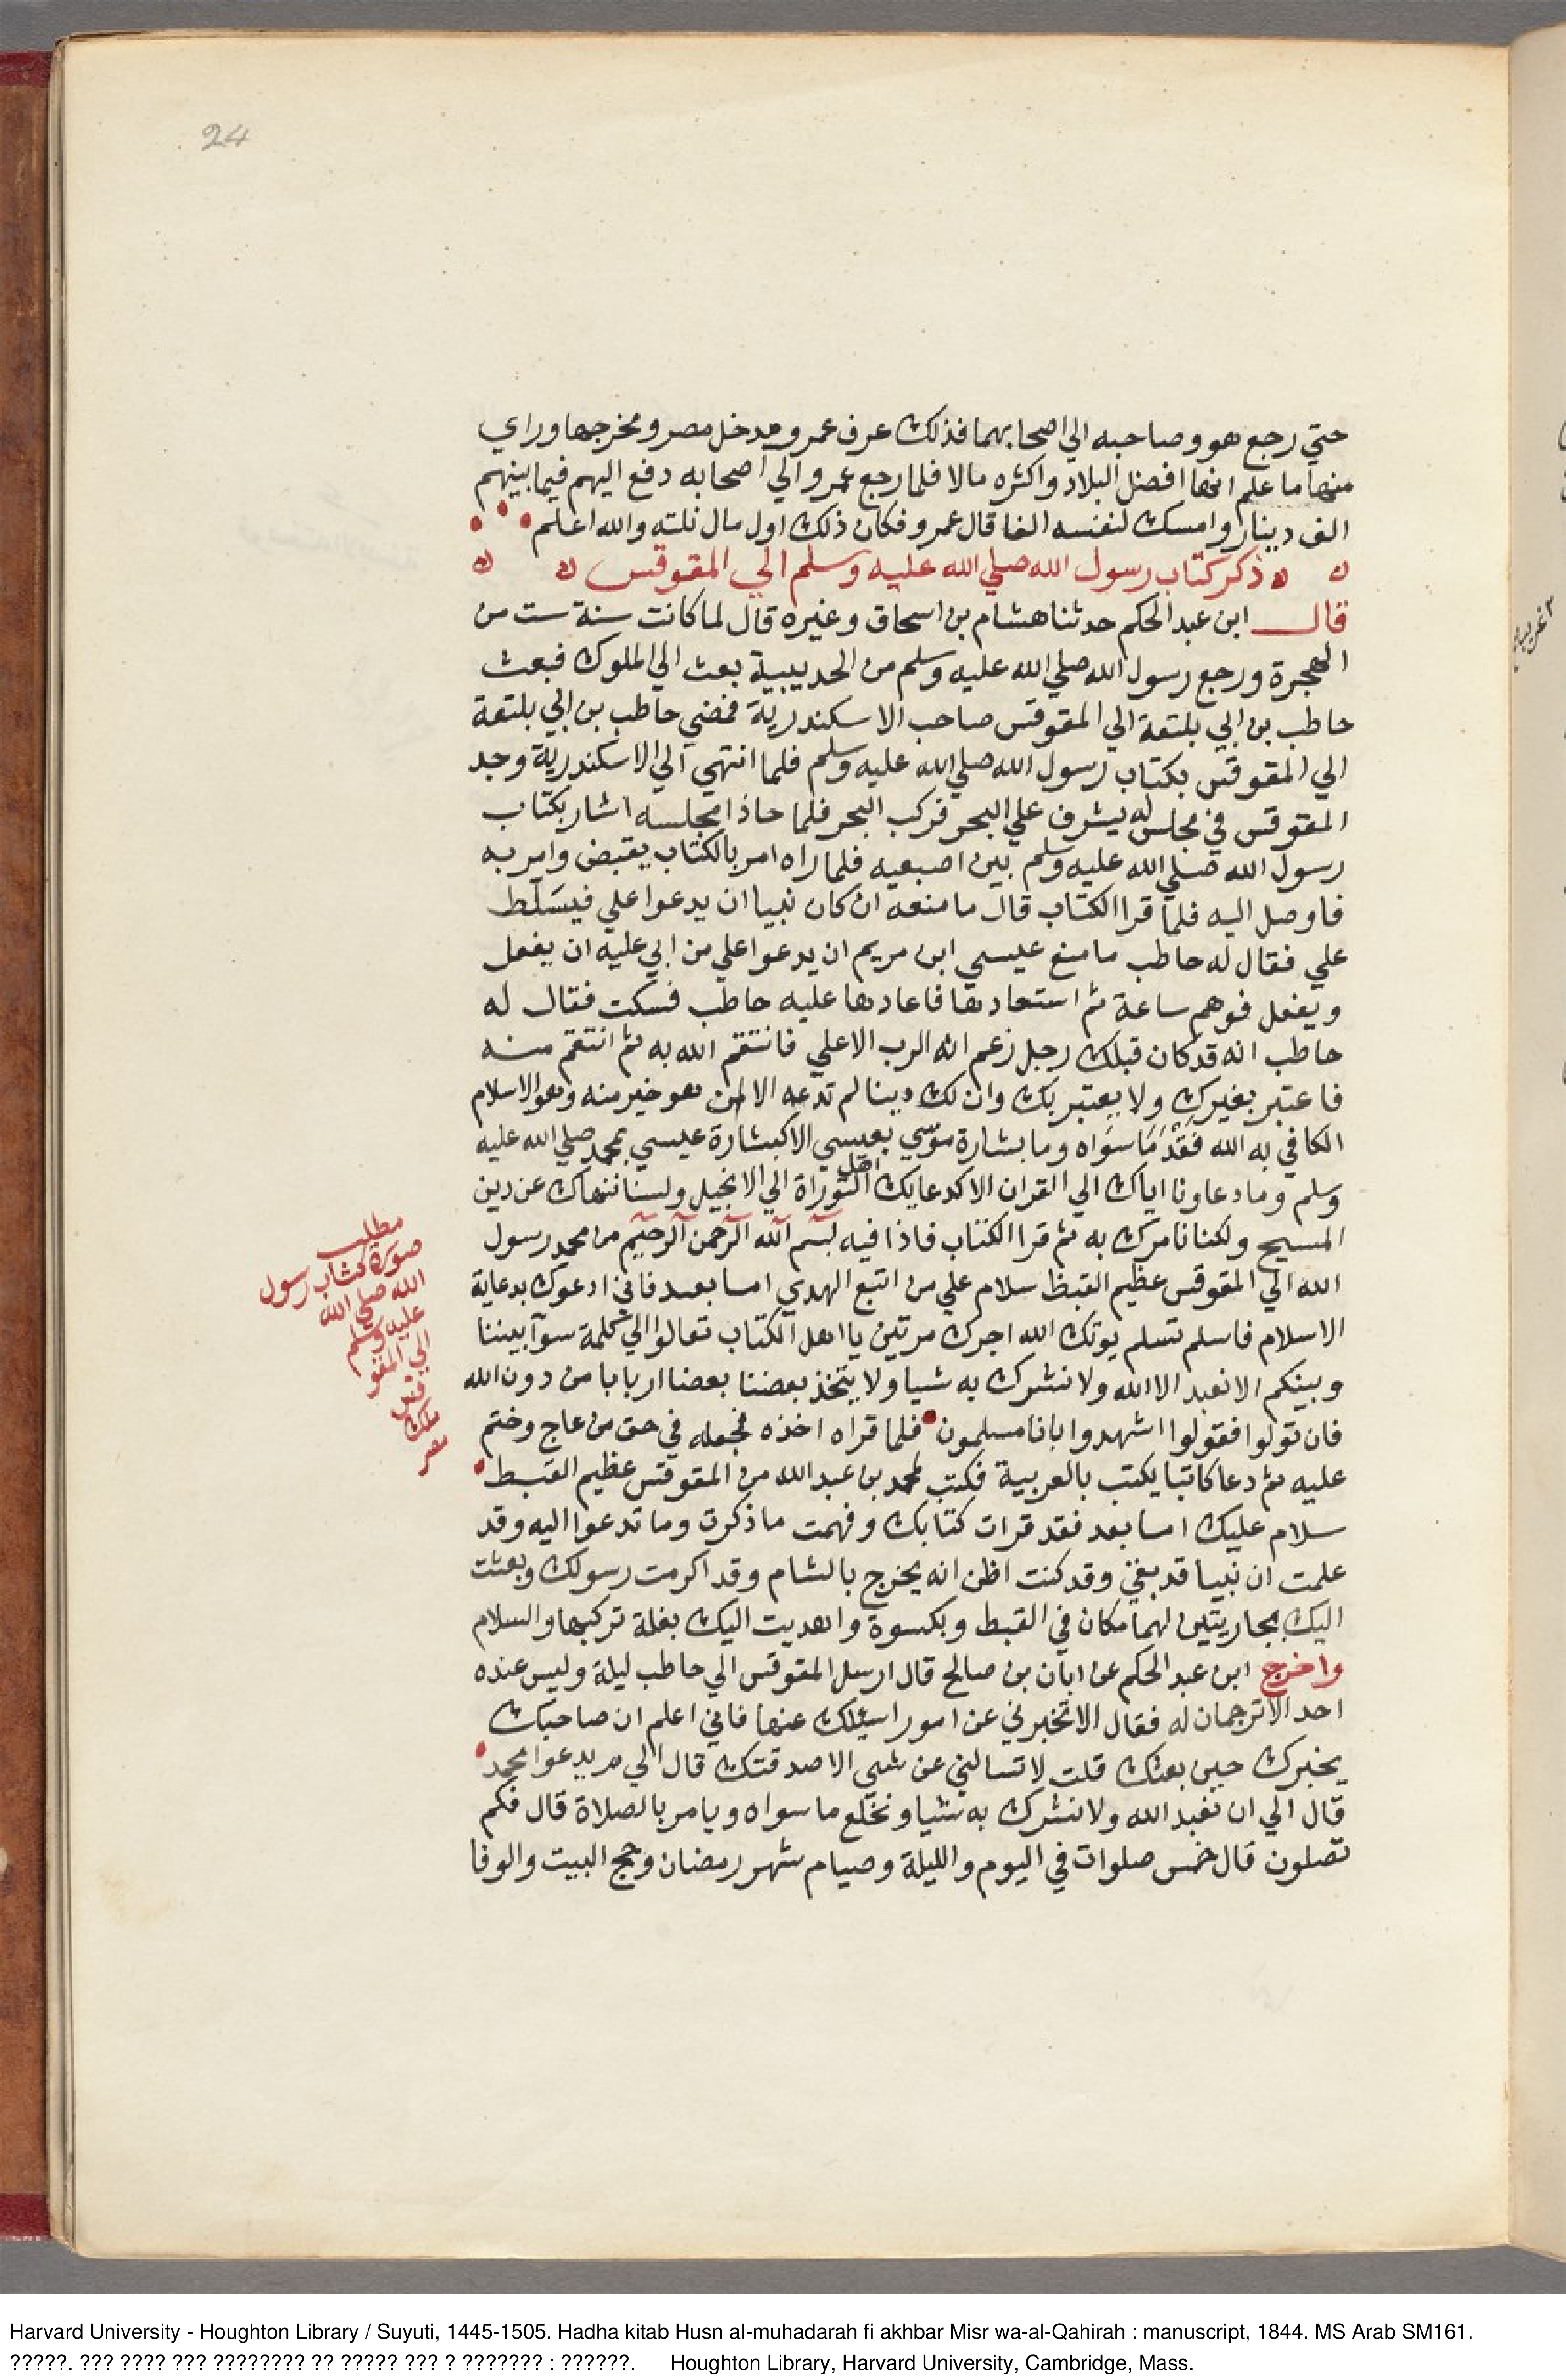 24
حتي رجع هو وصاحبه الي اصحابهما فذلك عرف عمرو مدخل مصر ومخرجها وراي
منها ما علم انها افضل البلاد واكثره مالا فلما رجع عمرو الي اصحابه دفع اليهم فيما بينهم
الف دينار وامسك لنفسه الفا قال عمرو فكان ذلك اول مال نلته والله اعلم
ذكر كتاب رسول الله صلي الله عليه وسلم الي المقوقس
قال ابن عبد الحكم حدثنا هشام بن اسحاق وغيره قال لما كانت سنة ست من
الهجرة ورجع رسول الله صلي الله عليه وسلم من الحديبية بعث الي الملوك فبعث
حاطب بن ابي بلتعة الي المقوقس صاحب الاسكندرية فمضي حاطب بن ابي بلتعة
الي المقوقس بكتاب رسول الله صلي الله عليه وسلم فلما انتهي الي الاسكندرية وجد
المقوقس في مجلس له يشرف علي البحر فركب البحر فلما حاذا مجلسه اشار بكتاب
رسول الله صلي الله عليه وسلم بين اصبعيه فلما راه امر بالكتاب يقبض وامر به
فاوصل اليه فلما قرا الكتاب قال ما منعه ان كان نبيا ان يدعوا علي فيسلط
علي فقال له حاطب ما منع عيسي ابن مريم ان يدعوا علي من ابي عليه ان يفعل
ويفعل فوهم ساعة ثم استعادها فاعادها عليه حاطب فسكت فقال له
حاطب انه قد كان قبلك رجل زعم انه الرب الاعلي فانتقم الله به ثم انتقم منه
فاعتبر بغيرك ولا يعتبر بك وان لك دينا لم تدعه الا لمن هو خير منه وهو الاسلام
الكافي به الله فقد ما سواه وما بشارة موسي بعيسي الا كبشارة عيسي بمحمد صلي الله عليه
وسلم وما دعاونا اياك الي القران الا كدعايك اهل التوراة الي الانجيل ولسنا ننهاك عن دين
المسيح ولكنا نامرك به ثم قرا الكتاب فاذا فيه بسم الله الرحمن الرحيم من محمد رسول
الله الي المقوقس عظيم القبط سلام علي من اتبع الهدي اما بعد فاني ادعوك بدعاية
الاسلام فاسلم تسلم يوتك الله اجرك مرتين يا اهل الكتاب تعالوا الي كلمة سوآ بيننا
وبينكم الا نعبد الا الله ولا نشرك به شيا ولا يتخذ بعضنا بعضا اربابا من دون الله
فان تولوا فقولوا اشهدوا بانا مسلمون فلما قراه اخذه فجعله في حق من عاج وختم
عليه ثم دعا كاتبا يكتب بالعربية فكتب لمحمد بن عبد الله من المقوقس عظيم القبط
سلام عليك اما بعد فقد قرات كتابك وفهمت ما ذكرت وما تدعوا اليه وقد
علمت ان نبيا قد بقي وقد كنت اظن انه يخرج بالشام وقد اكرمت رسولك وبعثت
اليك بجاريتين لهما مكان في القبط وبكسوة واهديت اليك بغلة تركبها والسلام
واخرج ابن عبد الحكم عن ابان بن صالح قال ارسل المقوقس الي حاطب ليلة وليس عنده
احد الا ترجمان له فقال الا تخبرني عن امور اسئلك عنها فاني اعلم ان صاحبك
يخبرك حين بعثك قلت لا تسالني عن شيي الا صدقتك قال الي م يدعوا محمد
قال الي ان نعبد الله ولا نشرك به شيا ونخلع ما سواه ويامر بالصلاة قال فكم
تصلون قال خمس صلوات في اليوم والليلة وصيام شهر رمضان وحج البيت والوفا
مطلب
صورة كتاب رسول
الله صلي الله
عليه وسلم
الي المقو
قس
ملك
مصر
Harvard University - Houghton Library / Suyuti, 1445-1505. Hadha kitab Husn al-muhadarah fi akhbar Misr wa-al-Qahirah : manuscript, 1844. MS Arab SM161.
?????. ??? ???? ??? ???????? ?? ????? ??? ? ??????? : ??????. Houghton Library, Harvard University, Cambridge, Mass.